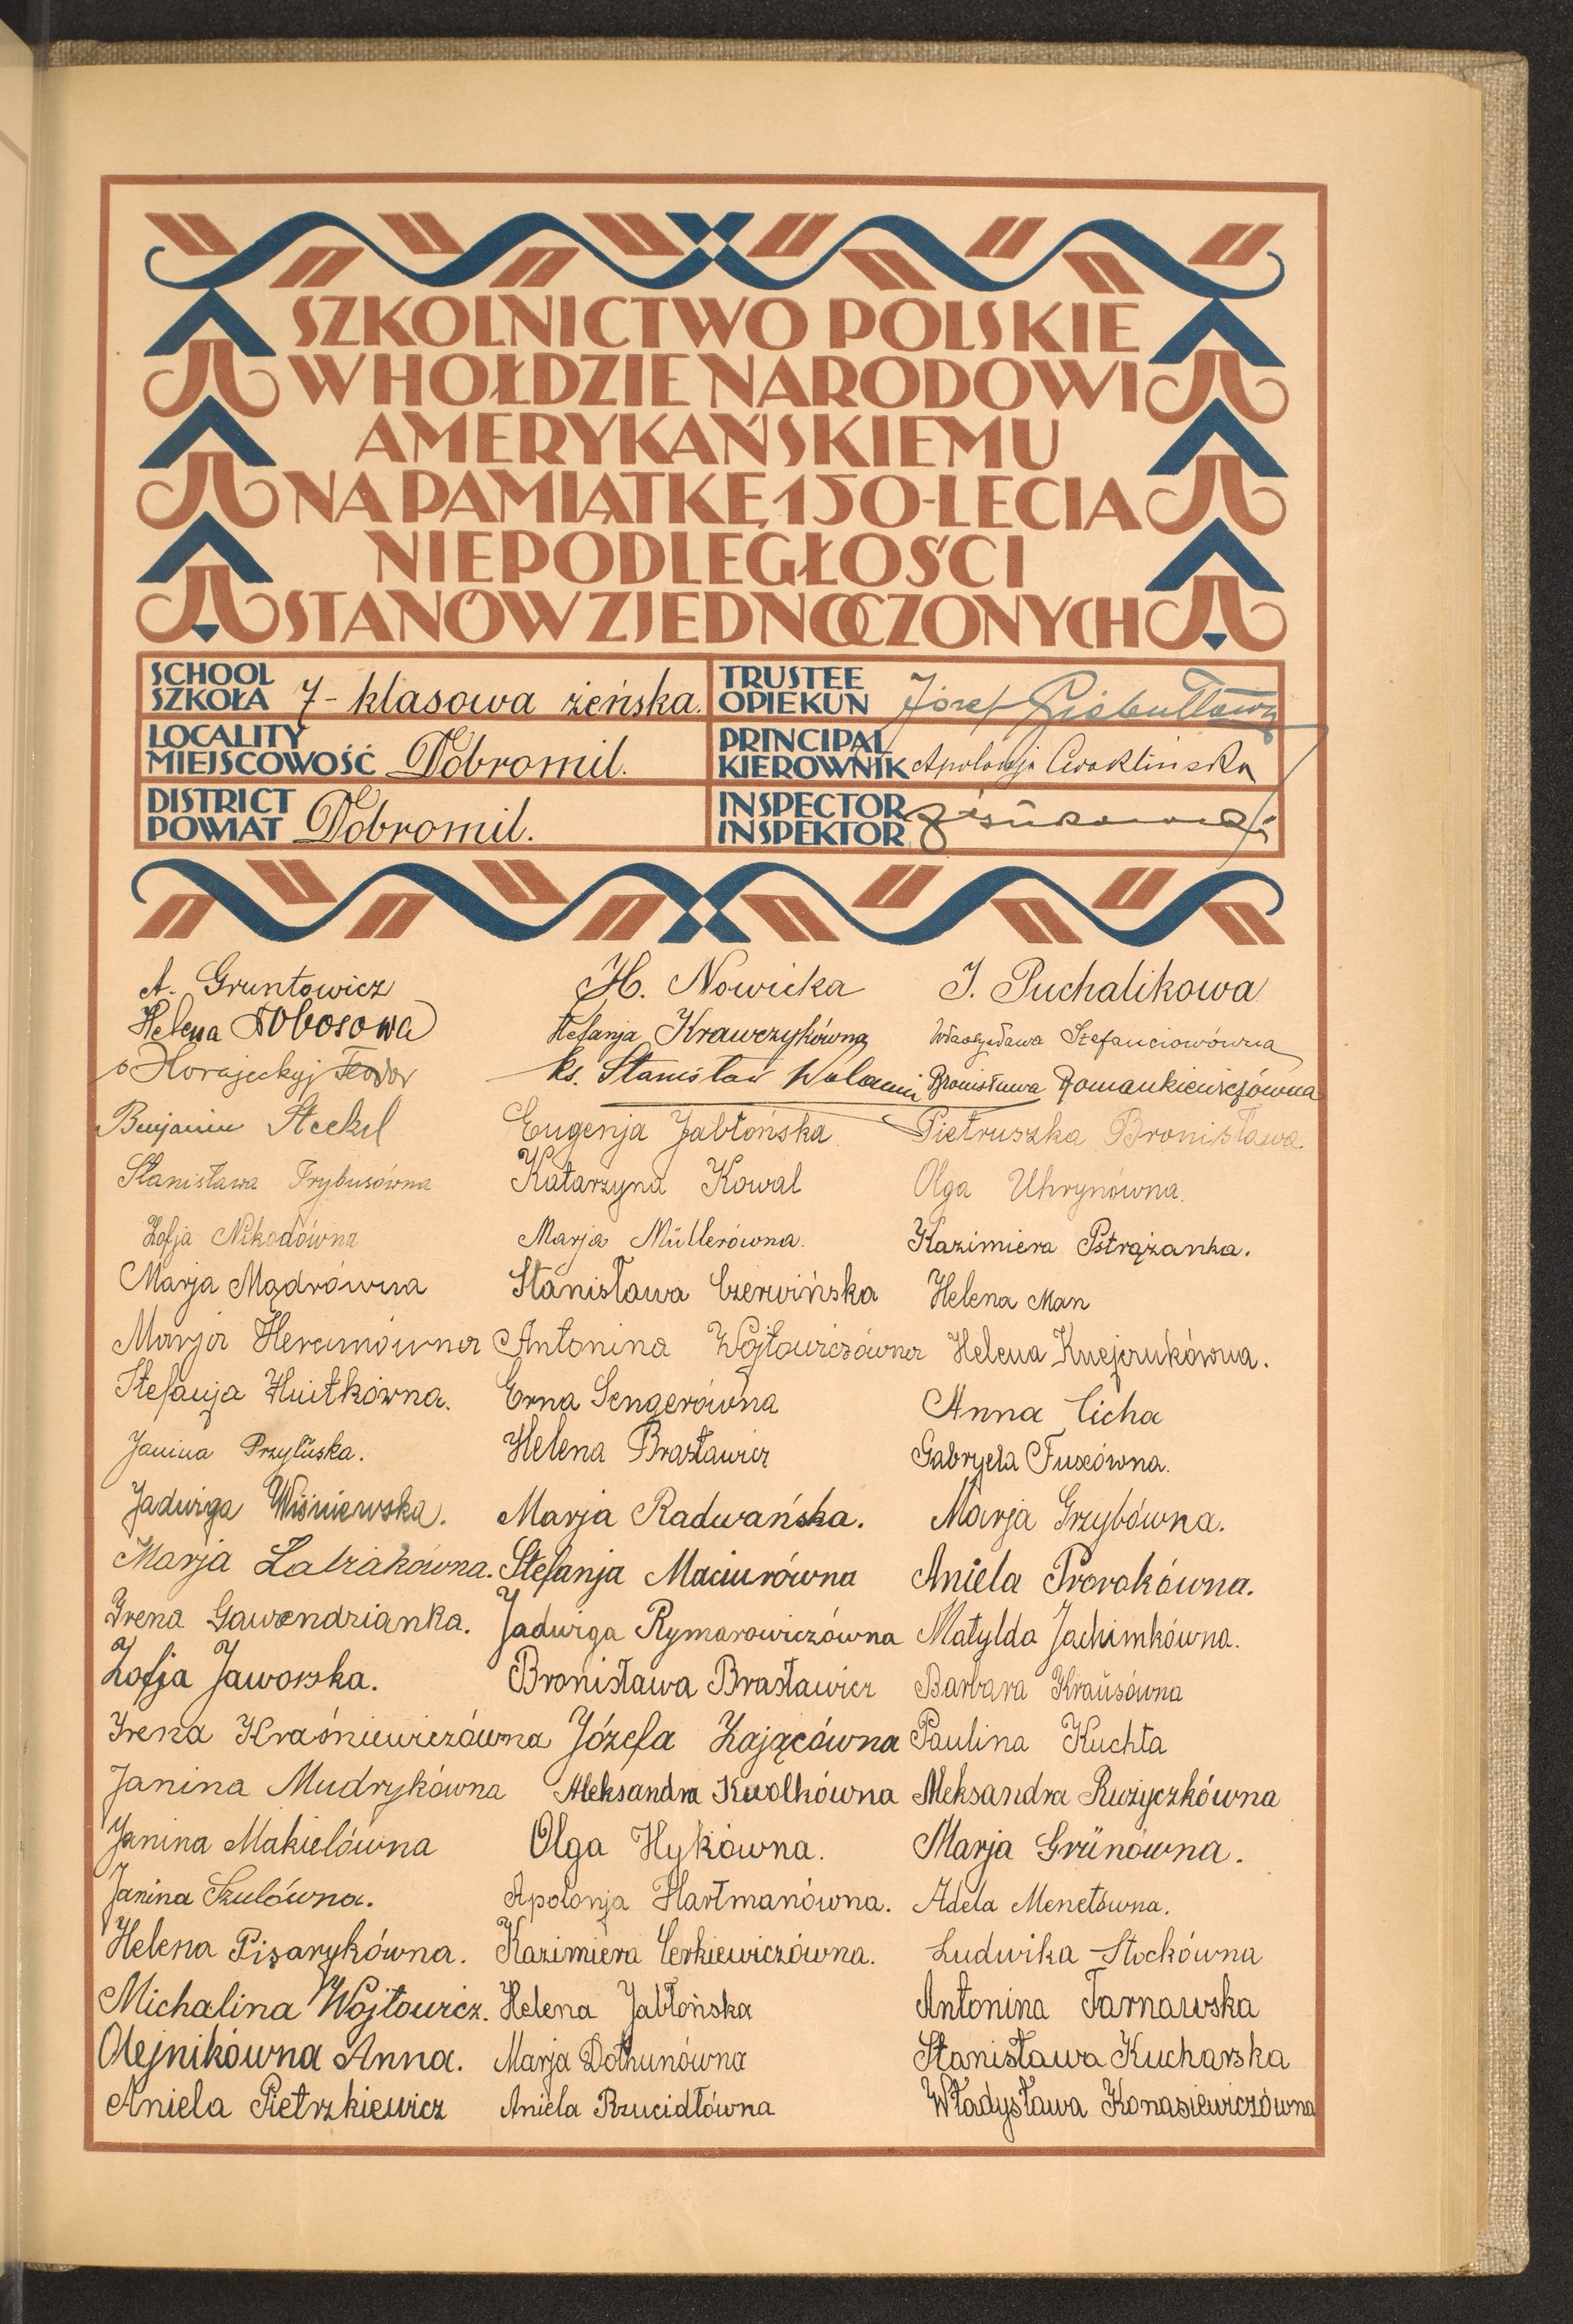 SZKOLNICTWO POLSKIE
W HOŁDZIE NARODOWI
AMERYKAŃSKIEMU
NA PAMIĄTKĘ 150-LECIA
NIEPODLEGŁOŚCI
STANÓW ZJEDNOCZONYCH
SCHOOL
SZKOŁA 7-klasowa żeńska.
TRUSTEE
OPIEKUN Józef
LOCALITY
MIEJSCOWOŚĆ Dobromil.
PRINCIPAL
KIEROWNIK Apolonja
DISTRICT
POWIAT Dobromil.
INSPECTOR
INSPEKTOR
A. Gruntowicz H. Nowicka J. Puchalikowa
Helena Stefanja Krawczykówna Władysława Stefanciowówna
Horajeckyj Teodor ks. Stanisław Bronisława Romankiewiczówna
Benjamin Steckel Eugenja Jabłońska Pietruszka Bronisława.
Stanisława Trybusówna Katarzyna Kowal Olga Uhrynówna.
Zofja Nikodówna Marja Müllerówna. Kazimiera Pstrążanka.
Marja Mądrówna Stanisława Czerwińska Helena Man
Marja Antonina Wojtowiczówna Helena
Stefanja Hnitkówna. Erna Sengerówna Anna Cicha
Janina Przyłuska. Helena Brasławicz Gabryela Fuxówna.
Jadwiga Wiśniewska. Marja Radwańska. Marja Grzybówna.
Marja Stefanja Maciurówna Aniela Prorokówna.
Irena Gawendzianka. Jadwiga Rymarowiczówna Matylda Jachimkówna.
Zofja Jaworska. Bronisława Brasławicz Barbara Kraüsówna
Irena Kraśniewiczówna Józefa Zającówna Paulina Kuchta
Janina Mudrykówna Aleksandra Kwolkówna Aleksandra Rużyczkówna
Janina Makielówna Olga Hykówna. Marja Grünówna.
Janina Szulówna. Apolonja Hartmanówna. Adela Menetówna.
Helena Pisarykówna. Kazimiera Cerkiewiczówna. Ludwika Stockówna
Michalina Wojtowicz. Helena Jabłońska Antonina Tarnawska
Olejnikówna Anna. Marja Dołhunówna Stanisława Kucharska
Aniela Pietrzkiewicz Aniela Rzucidłówna Władysława Konasiewiczówna